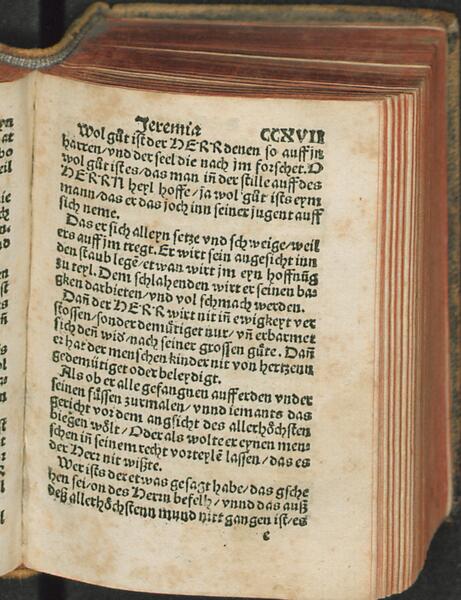 Jeremia CCXVII
Wol gůt ist der HERR denen so auff jn
harren/vnd der seel die nach jm forschet. O
wol gůt ist es/das man in der stille auff des
HERRN heyl hoffe/ja wol gůt ists eym
mann/das er das joch inn seiner jugent auff
sich neme.
Das er sich alleyn setze vnd schweige/weil
ers auff jm tregt. Er wirt sein angesicht inn
den staub legē/etwan wirt jm eyn hoffnūg
zu teyl. Dem schlahenden wirt er seinen ba-
gken darbieten/vnd vol schmach werden.
Dañ der HERR wirt nit in ewigkeyt ver
stossen/sonder demütiget nur/vñ erbarmet
sich deñ wid/nach seiner grossen güte. Dañ
er hat der menschen kinder nit von hertzenn
gedemütiget oder beleydigt.
Als ob er alle gefangnen auff erden vnder
seinen füssen zurmalen/vnnd iemants das
gericht vor dem angsicht des allerhöchsten
biegen wölt/Oder als wolte er eynen men
schen iñ seinem recht vorteylē lassen/das es
der Herr nit wißte.
Wer ists der etwas gesagt habe/das gsche
hen sei/on des Herrn befelh/vnnd das auß
deß allerhöchstenn mund nitt gangen ist/es
c